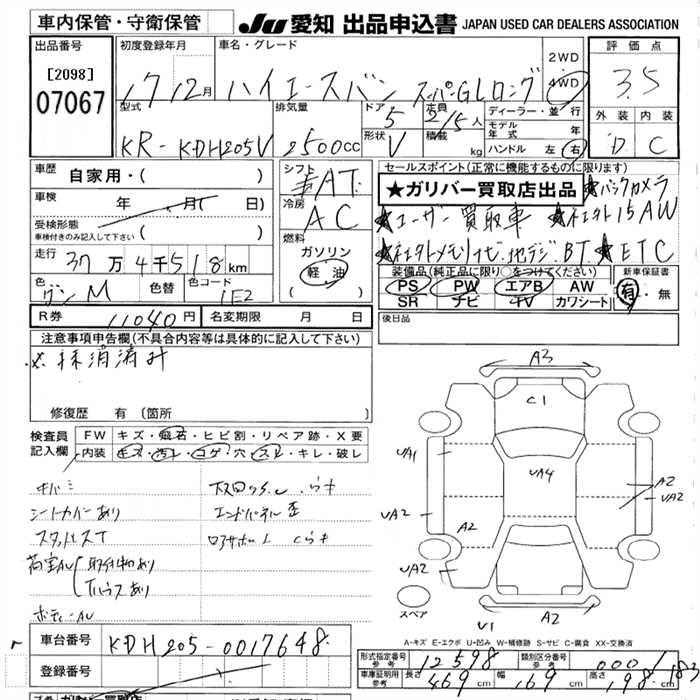 車内保管・守衛保管
JU 愛知 出品申込書 JAPAN USED CAR DEALERS ASSOCIATION
出品番号
[2098]
07067
初度登録年月
17 12月
車名・グレード
ハイエースバン スーパーGLロング
2WD
4WD
評価点
3.5
外装 内装
D C
型式
KR-KDH205V
排気量
2500cc
ドア
5
形状
V
定員
2/5人
積載
kg
ディーラー・並行
モデル年式 年
ハンドル 左・右
車歴
自家用・( )
車検
年 月( 日)
受検形態
車検付きのみ記入して下さい ( )
走行
37万4千518km
色
グンM
色替
色コード
1E2
シフト
AT
冷房
AC
燃料
ガソリン
軽油
( )
セールスポイント(正常に機能するものに限ります)
★ガリバー買取店出品
★バックカメラ
★ユーザー買取車 ★社外15AW
★社外メモリナビ.地デジ.BT.★ETC
装備品(純正品に限り○をつけてください)
PS PW エアB AW
SR ナビ TV カワシート
新車保証書
有・無
R券 11040円
名変期限 月 日
後日品
注意事項申告欄(不具合内容等は具体的に記入して下さい)
※抹消済み
修復歴 有 (箇所
検査員記入欄
FW キズ・飛石・ヒビ割・リペア跡・X要
内装 キズ・汚れ・コゲ・穴・スレ・キレ・破レ
キバミ
シートカバーあり
スタッドレスT
荷室AU
取付物あり
ボディーAU
エンドパネル歪
A3
C1
UA1
UA4
A2
UA2
UA2
A2
UA2
U1
A2
スペア
A-キズ E-エクボ U-凹み W-補修跡 S-サビ C-腐食 XX-交換済
車台番号
KDH205-0017648
登録番号
形式指定番号
参考
12598
類別区分番号
参考
000/182
車庫証明用
参考
長さ
469cm
幅
169cm
高さ
198cm